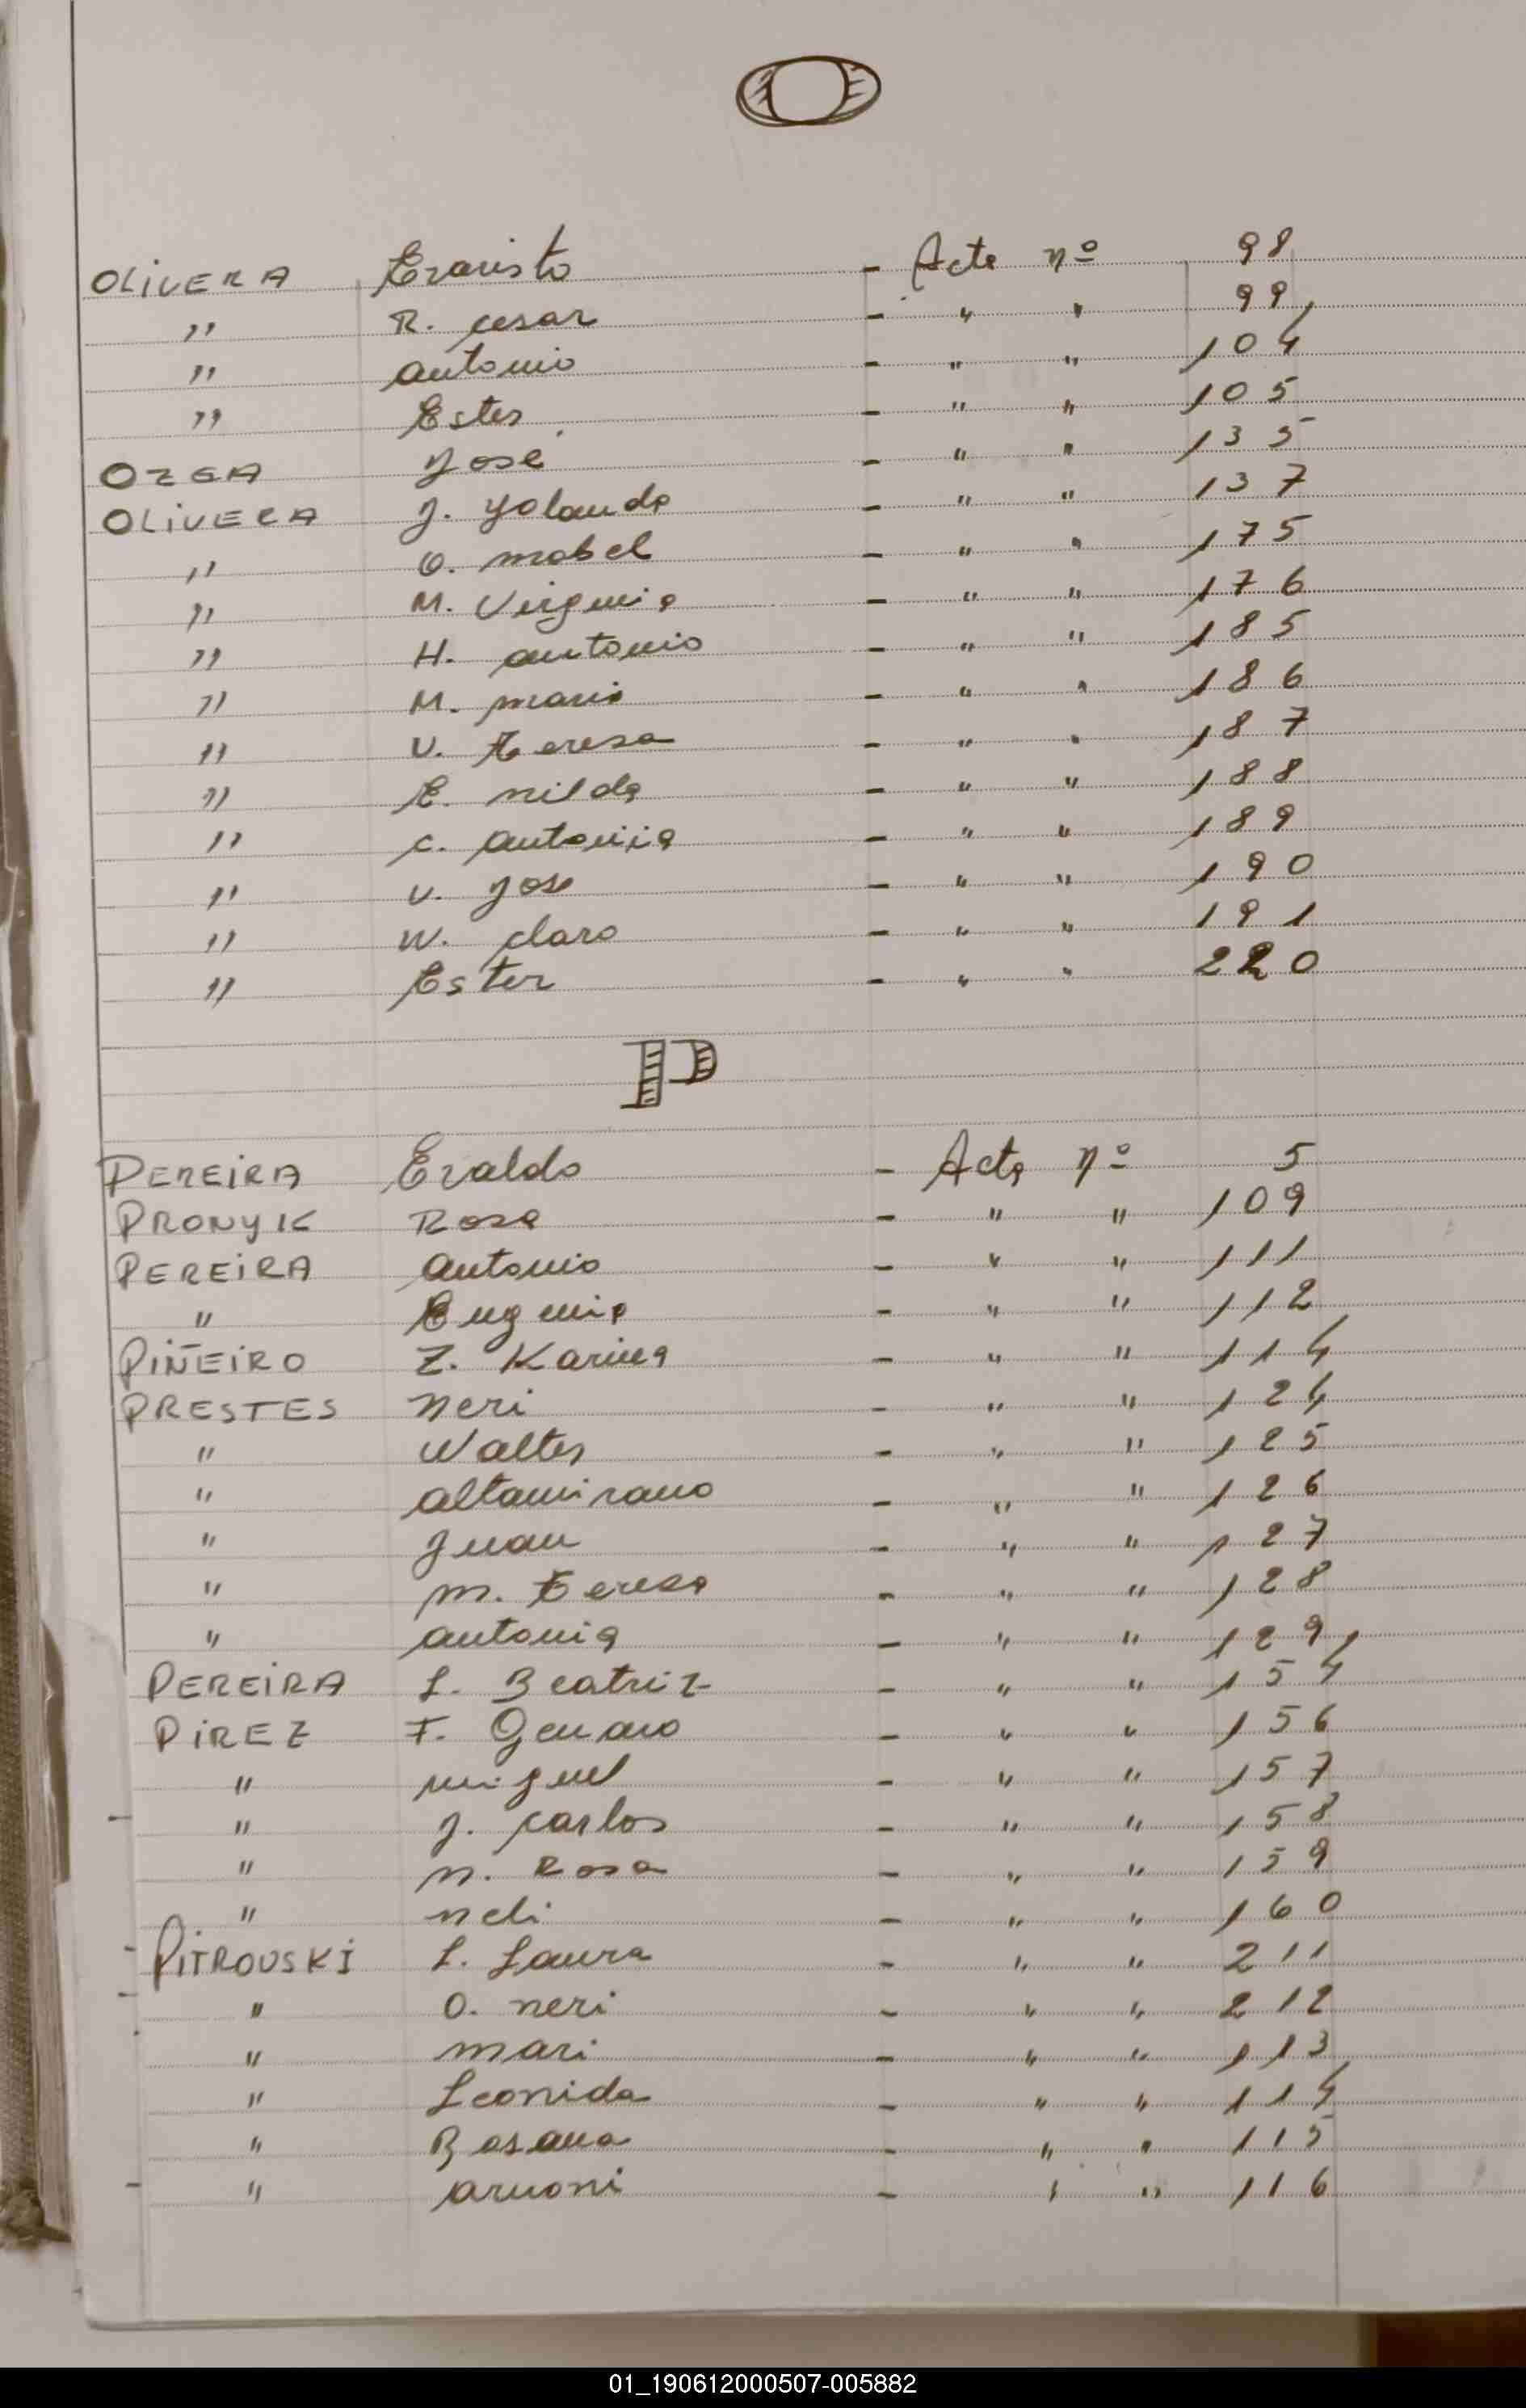 O
OLIVERA Evaristo - Acta nº 98
" R. cesar - " " 99
" antonio - " " 104
" Ester - " " 105
OZGA José - " " 135
OLIVERA J. yolanda - " " 137
" O. mabel - " " 175
" M. Virginia - " " 176
" H. antonio - " " 185
" M. mario - " " 186
" V. Teresa - " " 187
" E. nilda - " " 188
" C. antonia - " " 189
" V. Jose - " " 190
" W. claro - " " 191
" Ester - " " 220
P
PEREIRA Evaldo - Acta nº 5
PRONYIK Rosa - " " 109
PEREIRA antonio - " " 111
" Eugenia - " " 112
PIÑEIRO Z. Karina - " " 114
PRESTES neri - " " 124
" Walter - " " 125
" altamirano - " " 126
" Juan - " " 127
" m. Teresa - " " 128
" antonia - " " 129
PEREIRA L. Beatriz - " " 154
PIREZ F. Genaro - " " 156
" miguel - " " 157
" J. carlos - " " 158
" n. Rosa - " " 159
" neli - " " 160
PITROUSKI L. Laura - " " 211
" O. neri - " " 212
" mari - " " 113
" Leonida - " " 114
" Rosana - " " 115
" arnoni - " " 116
01_190612000507-005882